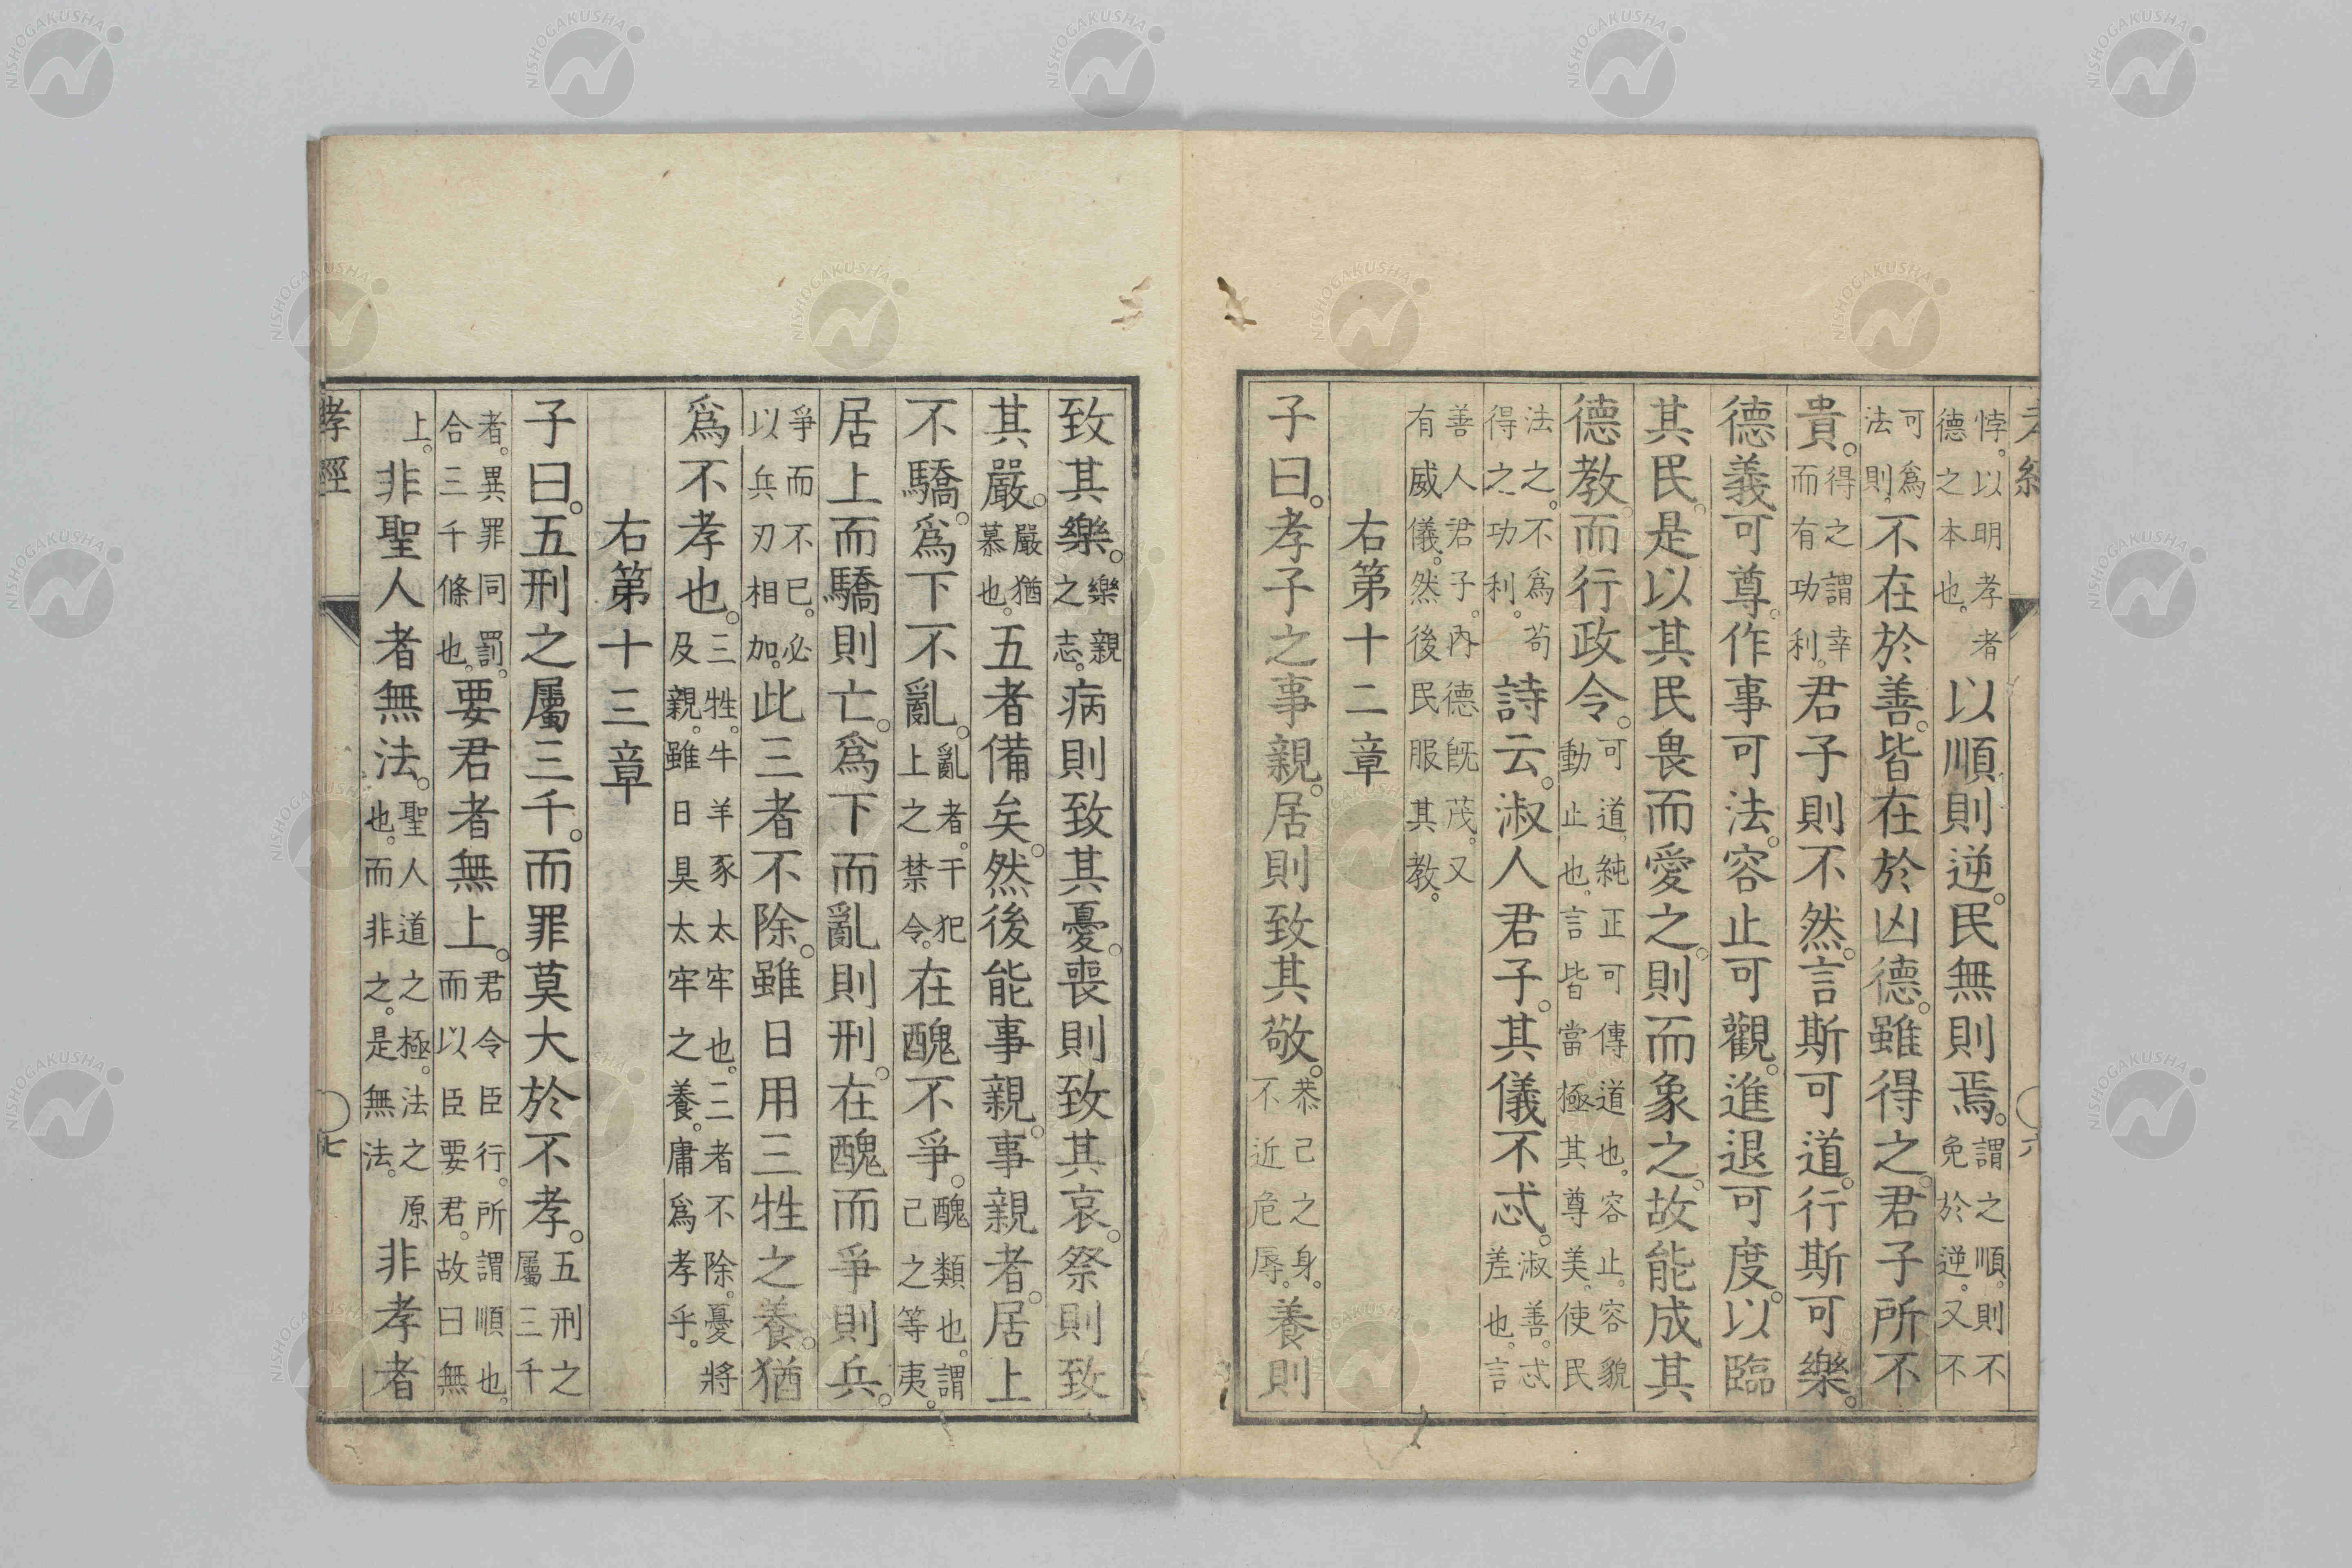 悖。以明孝者德之本也。以順則逆。民無則焉。謂之順。則不免於逆。又不
可爲法則。不在於善。皆在於凶德。雖得之。君子所不
貴。得之謂幸而有功利。君子則不然。言斯可道。行斯可樂。
德義可尊。作事可法。容止可觀。進退可度。以臨
其民。是以其民畏而愛之。則而象之。故能成其
德教。而行政令。可道。純正可傳道也。容止。容貌動止也。言皆當極其尊美。使民
法之。不爲苟得之功利。詩云。淑人君子。其儀不忒。淑善。忒差也。言
善人君子。內德旣茂。又有威儀。然後民服其教。
右第十二章
子曰。孝子之事親。居則致其敬。恭己之身。不近危辱。養則
致其樂。樂親之志。病則致其憂。喪則致其哀。祭則致
其嚴。嚴猶慕也。五者備矣。然後能事親。事親者。居上
不驕。爲下不亂。亂者。干犯上之禁令。在醜不爭。醜類也。謂己之等夷。
居上而驕則亡。爲下而亂則刑。在醜而爭則兵。
爭而不已。必以兵刃相加。此三者不除。雖日用三牲之養。猶
爲不孝也。三牲。牛羊豕太牢也。三者不除。憂將及親。雖日具太牢之養。庸爲孝乎。
右第十三章
子曰。五刑之屬三千。而罪莫大於不孝。五刑之屬三千
者。異罪同罰。合三千條也。要君者無上。君令臣行。所謂順也。而以臣要君。故曰無
上。非聖人者無法。聖人道之極。法之原也。而非之。是無法。非孝者
孝經 七